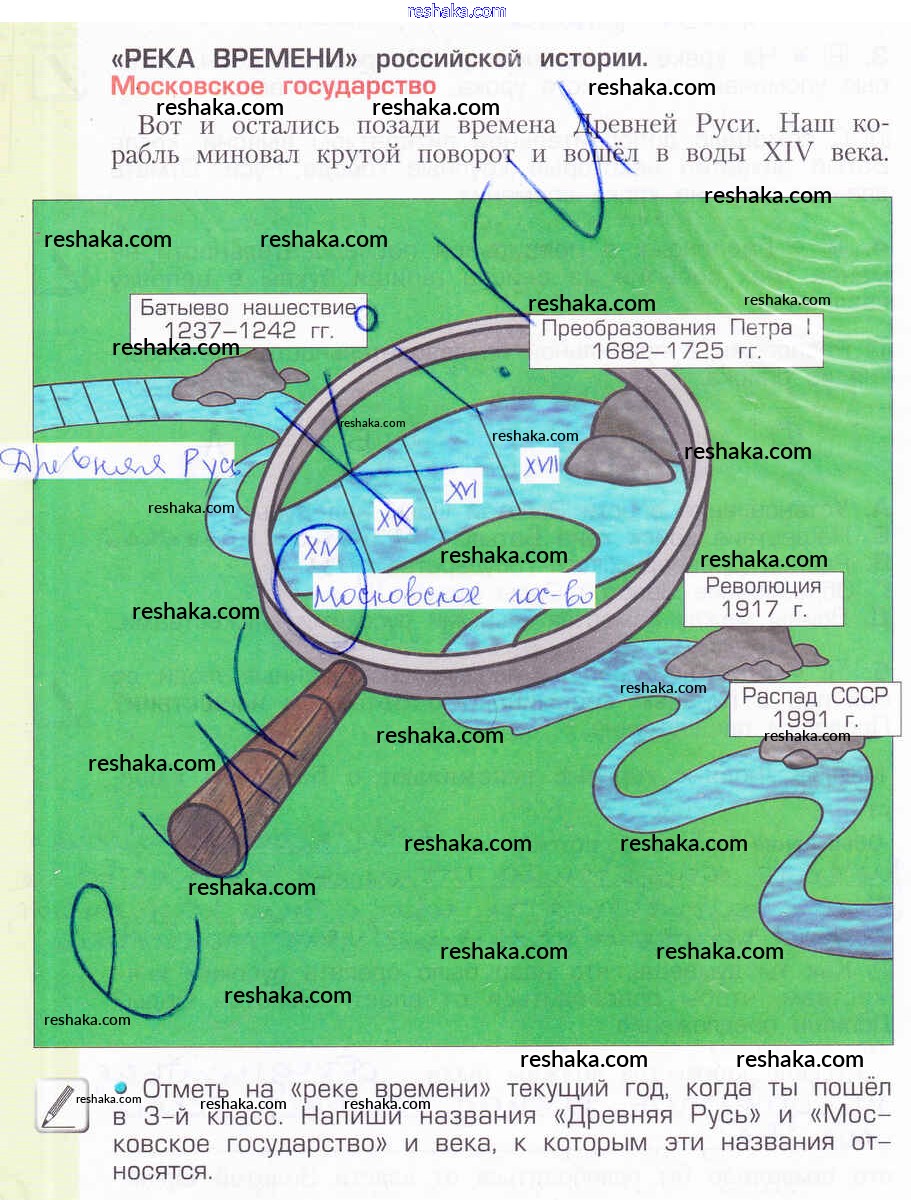 reshaka.com
«РЕКА ВРЕМЕНИ» российской истории.
Московское государство
reshaka.com
reshaka.com
reshaka.com
Вот и остались позади времена Древней Руси. Наш ко-
рабль миновал крутой поворот и вошёл в воды XIV века.
reshaka.com
reshaka.com
reshaka.com
Батыево нашествие
1237–1242 гг.
reshaka.com
reshaka.com
reshaka.com
Преобразования Петра I
1682–1725 гг.
reshaka.com
reshaka.com
reshaka.com
Древняя Русь
XVII
XVI
reshaka.com
XV
XIV
reshaka.com
reshaka.com
Московское гос-во
Революция
1917 г.
reshaka.com
reshaka.com
Распад СССР
1991 г.
reshaka.com
reshaka.com
reshaka.com
reshaka.com
reshaka.com
reshaka.com
reshaka.com
reshaka.com
reshaka.com
reshaka.com
reshaka.com
reshaka.com
Отметь на «реке времени» текущий год, когда ты пошёл
reshaka.com
reshaka.com
reshaka.com
в 3-й класс. Напиши названия «Древняя Русь» и «Мос-
ковское государство» и века, к которым эти названия от-
носятся.